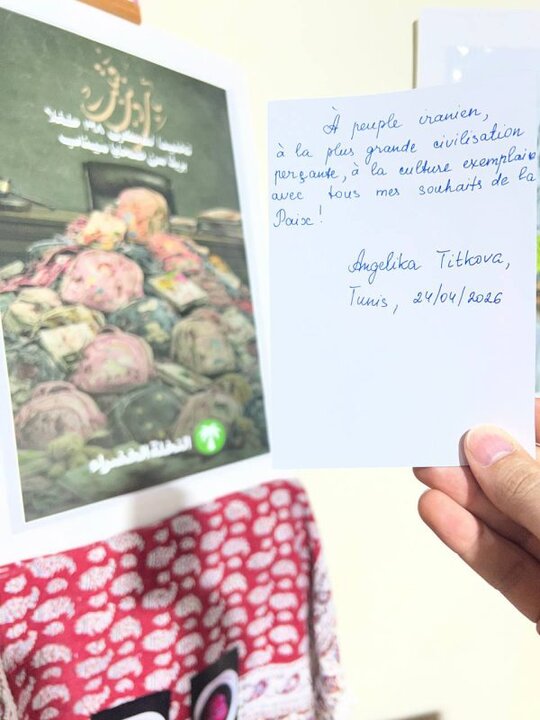 À peuple iranien,
à la plus grande civilisation
perçante, à la culture exemplaire
avec tous mes souhaits de la
Paix!
Angelika Titkova,
Tunis, 24/04/2026
النخلة الخضراء